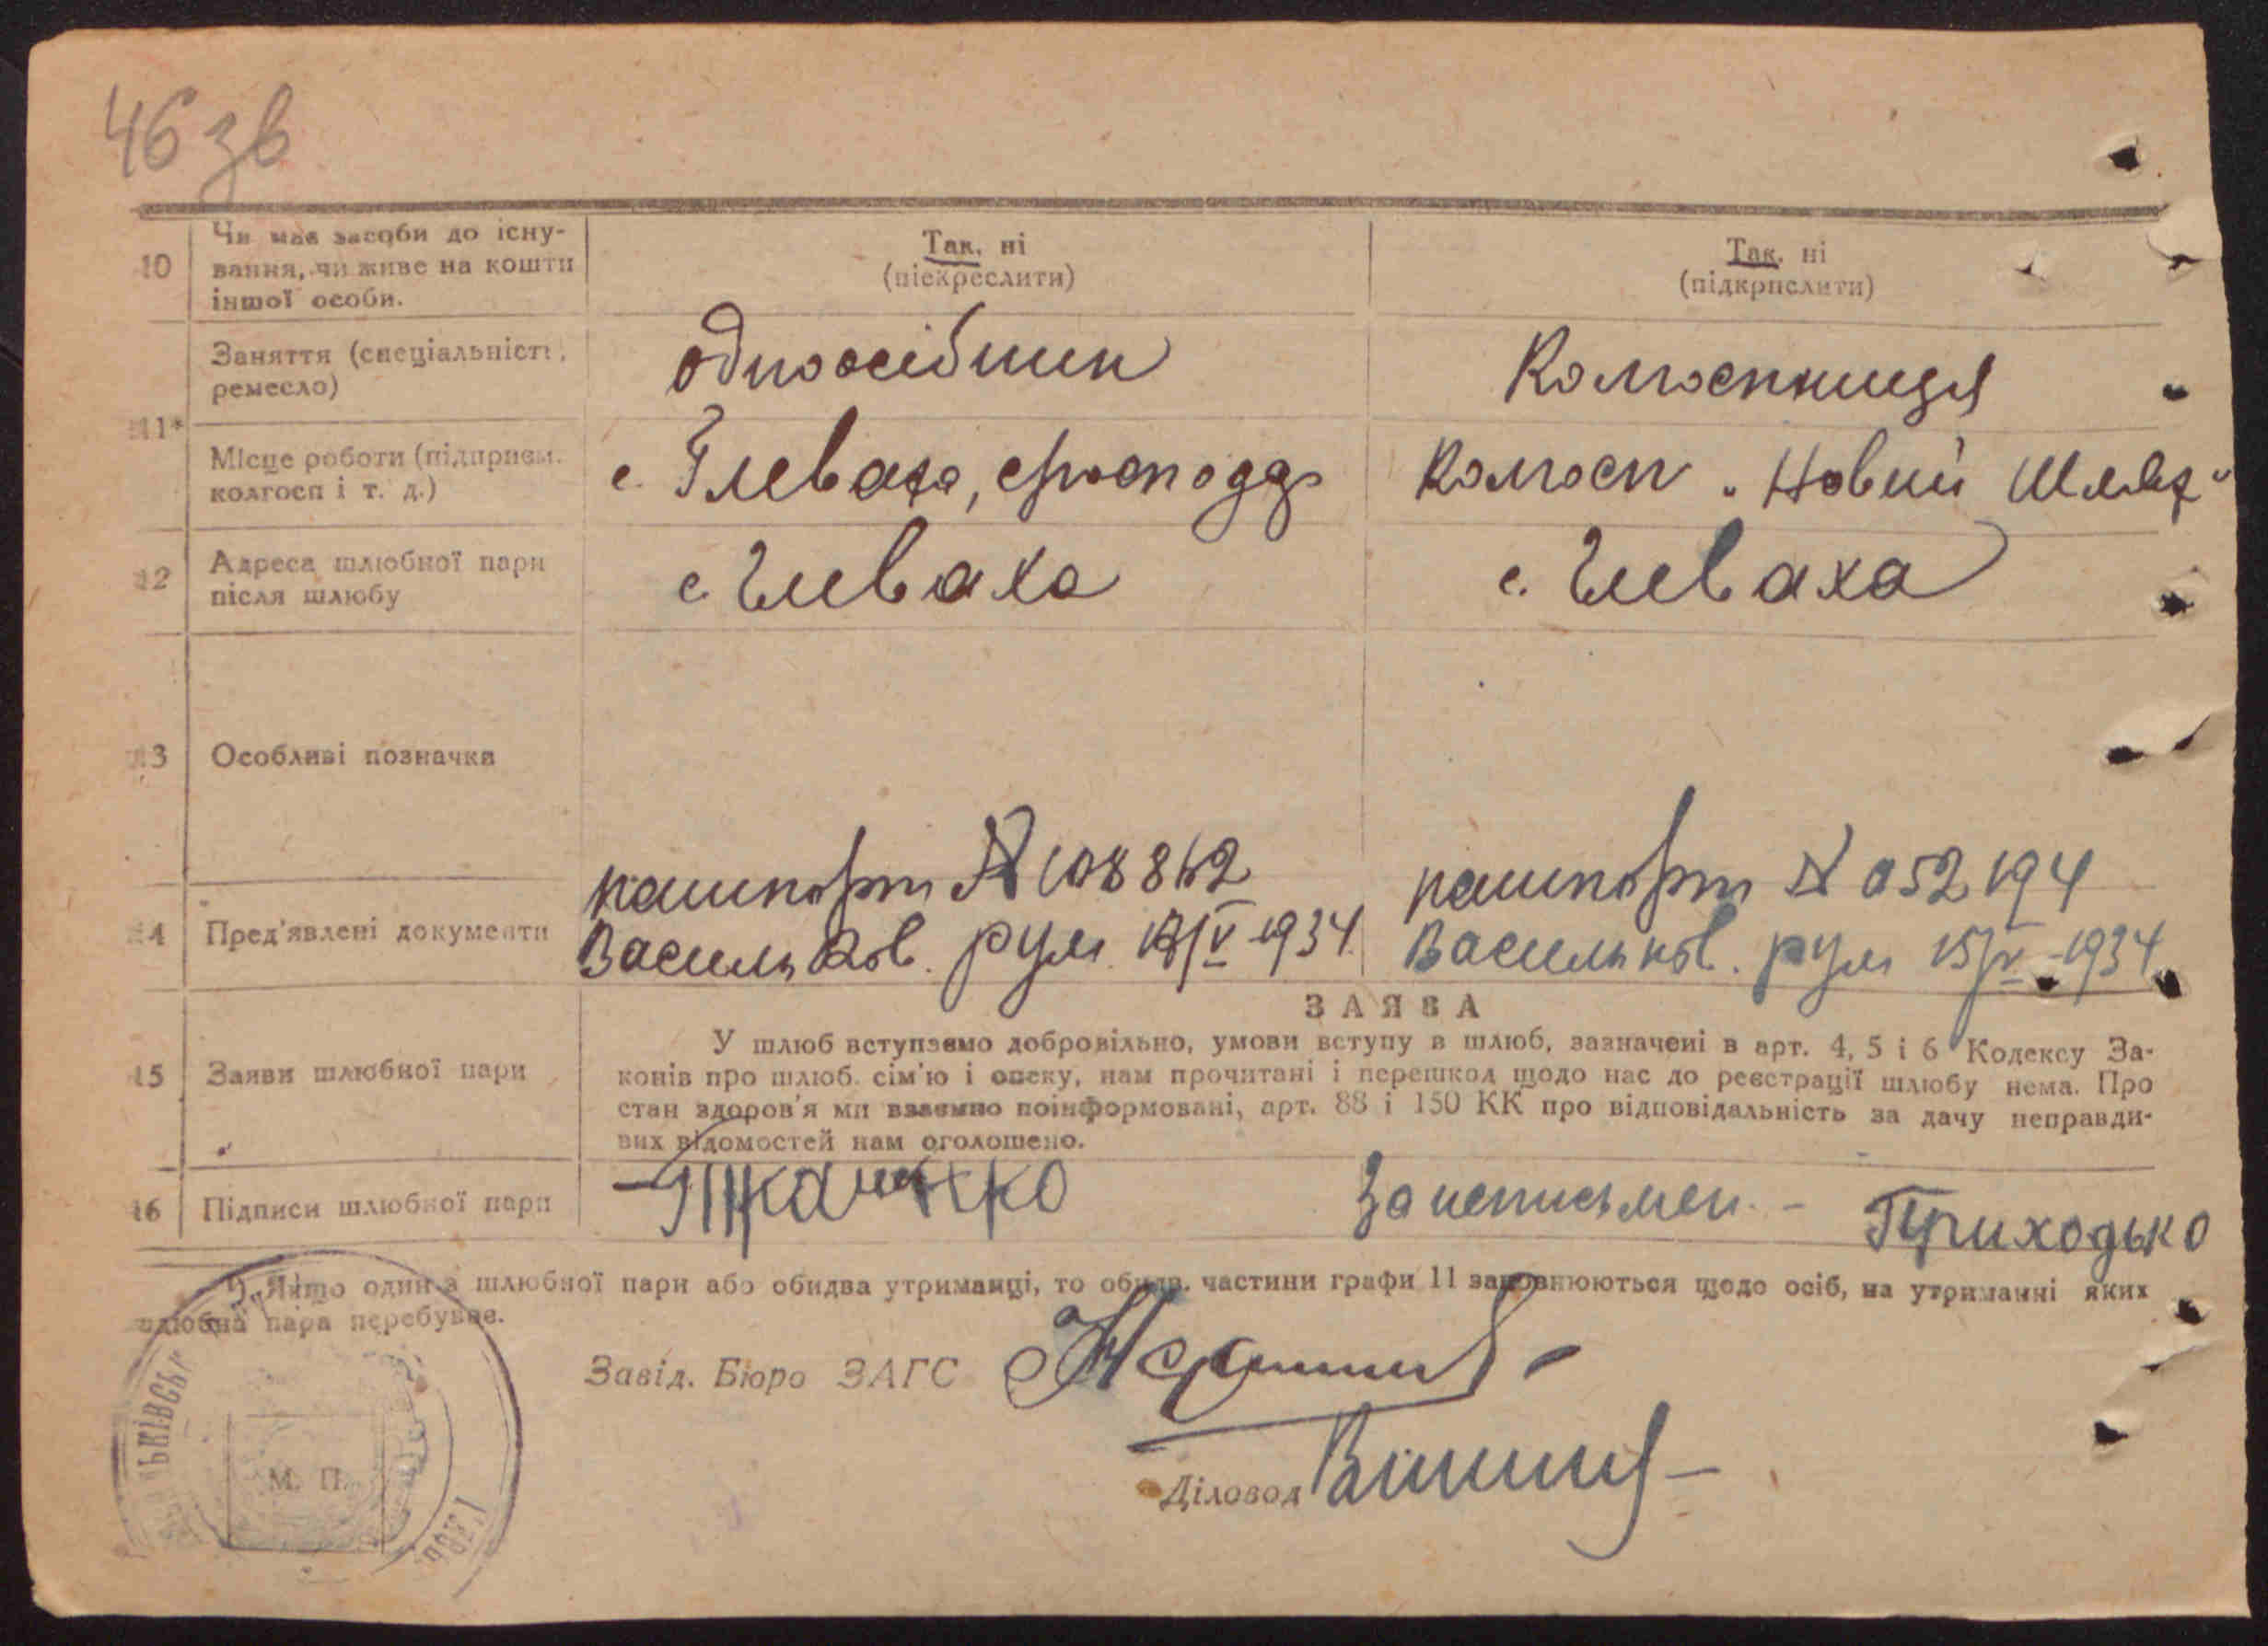 46 зв
10
Чи має засоби до існу-
вання, чи живе на кошти
іншої особи.
Так, ні
(піскреслити)
Так, ні
(підкрислити)
11*
Заняття (спеціальність,
ремесло)
одноосібник
Колгоспниця
Місце роботи (підприєм.
колгосп і т. д.)
с. Глеваха,
Колгосп „Новий Шлях"
12
Адреса шлюбної пари
після шлюбу
с. Глеваха
с. Глеваха
13
Особливі позначки
14
Пред'явлені документи
пашпорт №
Васильков. рум 1934
пашпорт № 052194
Васильков. рум 15/V-1934
ЗАЯВА
15
Заяви шлюбної пари
У шлюб вступаємо добровільно, умови вступу в шлюб, зазначені в арт. 4, 5 і 6 Кодексу За-
конів про шлюб. сім'ю і опеку, нам прочитані і перешкод щодо нас до реєстрації шлюбу нема. Про
стан здоров'я ми взаємно поінформовані, арт. 88 і 150 КК про відповідальність за дачу неправди-
вих відомостей нам оголошено.
16
Підписи шлюбної пари
Ткаченко
За неписьмен. - Приходько
*) Якщо один з шлюбної пари або обидва утриманці, то обидв. частини графи 11 заповнюються щодо осіб, на утриманні яких
шлюбна пара перебуває.
Завід. Бюро ЗАГС
Діловод
М. П.